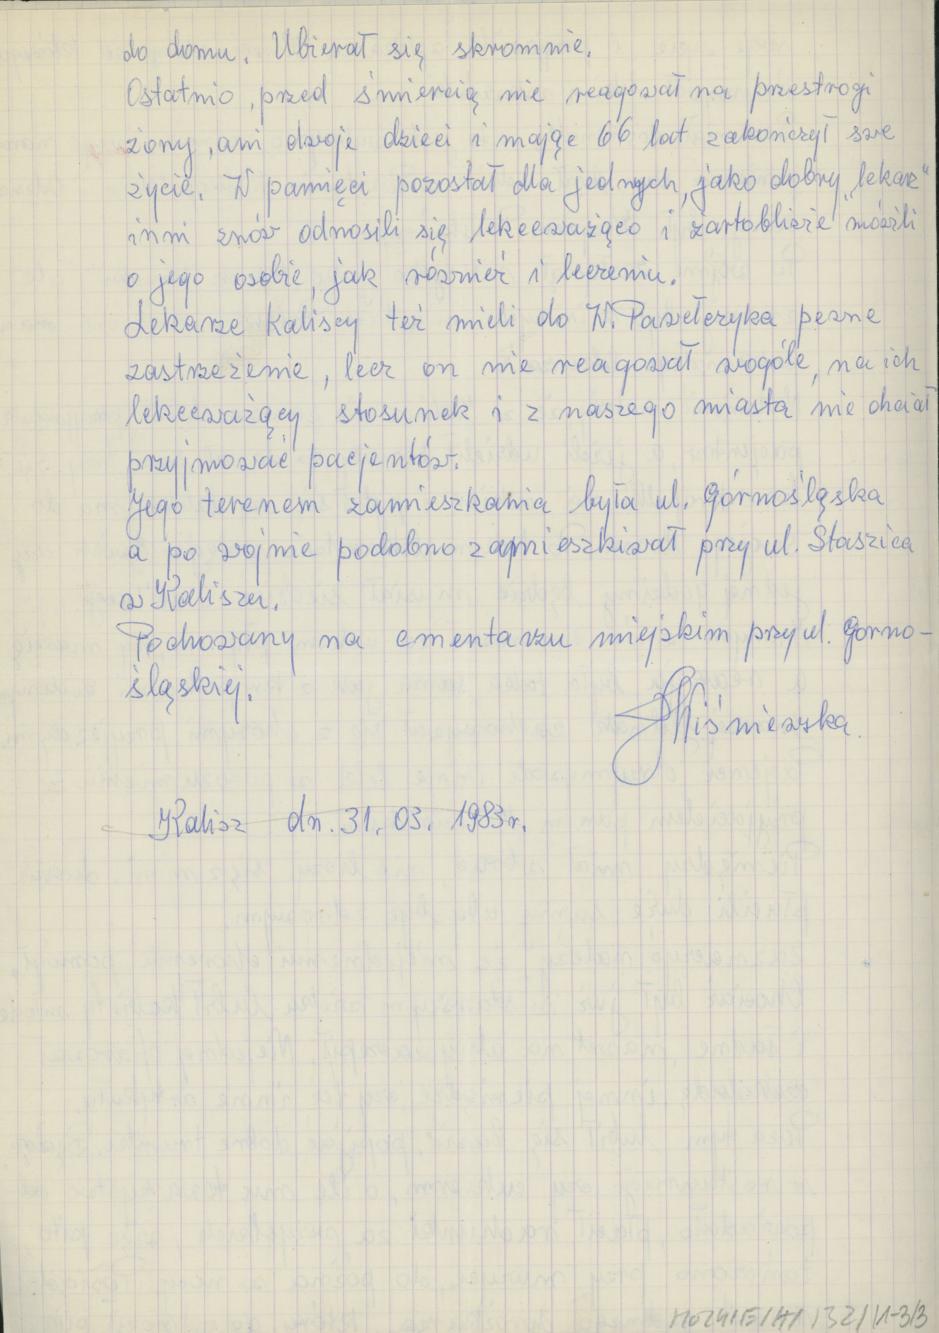 do domu. Ubierał się skromnie.
Ostatnio, przed śmiercią nie reagował na przestrogi
żony, ani dwoje dzieci i mając 66 lat zakończył swe
życie. W pamięci pozostał dla jednych, jako dobry „lekarz"
inni znów odnosili się lekceważąco i żartobliwie mówili
o jego osobie, jak również i leczeniu.
Lekarze Kaliscy też mieli do W. Pawełczyka pewne
zastrzeżenie, lecz on nie reagował wogóle, na ich
lekceważący stosunek i z naszego miasta nie chciał
przyjmować pacjentów.
Jego terenem zamieszkania była ul. Górnośląska
a po wojnie podobno zamieszkiwał przy ul. Staszica
w Kaliszu.
Pochowany na cmentarzu miejskim przy ul. Górno-
śląskiej.
Wiśniewska.
Kalisz dn. 31. 03. 1983r.